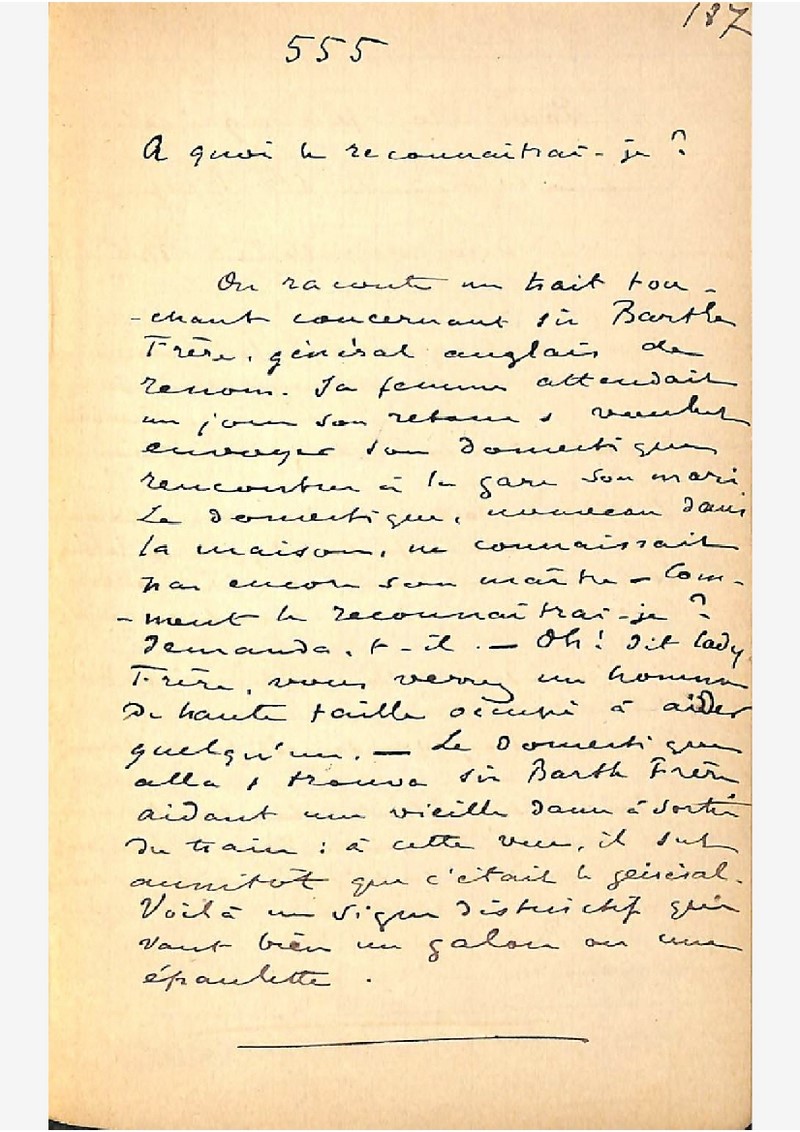 187
555
A quoi le reconnaîtrai-je ?
On raconte un trait tou-
-chant concernant sir Barthe
Frère, général anglais de
renom. Sa femme attendait
un jour son retour & voulut
envoyer son domestique
rencontrer à la gare son mari
Le domestique, nouveau dans
la maison, ne connaissait
pas encore son maître — Com-
-ment le reconnaîtrai-je ?
demanda-t-il. — Oh ! dit lady
Frère, vous verrez un homme
de haute taille occupé à aider
quelqu'un. — Le domestique
alla & trouva sir Barth Frère
aidant une vieille dame à sortir
du train : à cette vue, il sut
aussitôt que c'était le général.
Voilà un signe distinctif qui
vaut bien un galon ou une
épaulette.